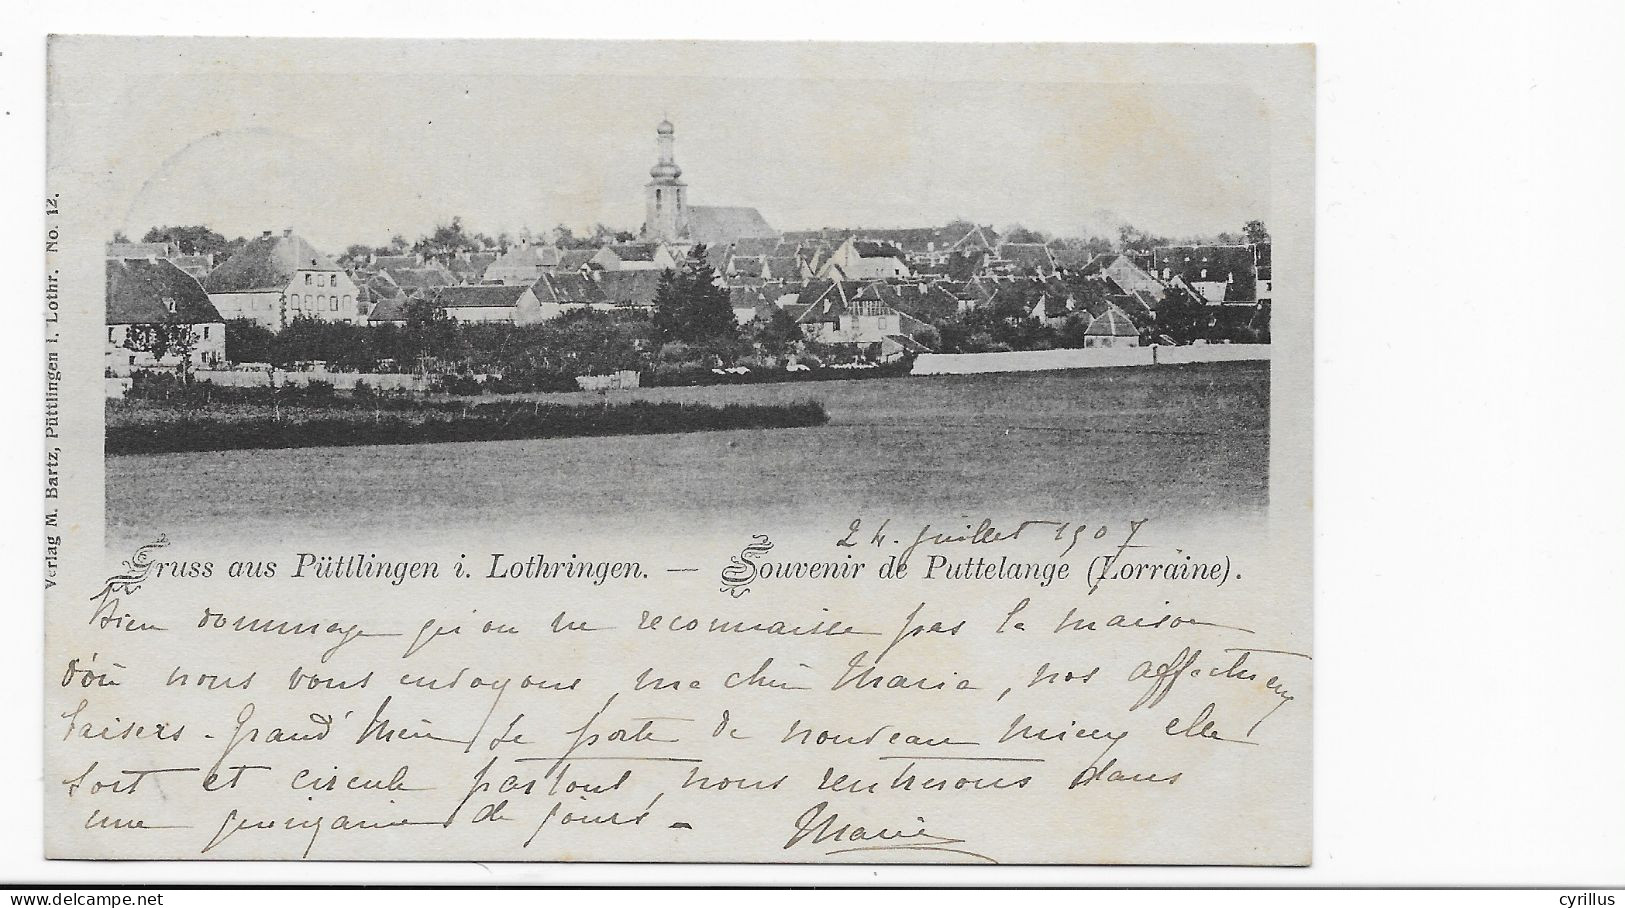 Verlag M. Bartz, Püttlingen i. Lothr. No. 12.
24. juillet 1907
Gruss aus Püttlingen i. Lothringen. — Souvenir de Puttelange (Lorraine).
Bien dommage qu'on ne reconnaisse pas la maison
d'où nous vous envoyons, ma chère Maria, nos affectueux
baisers. Grand'Mère se porte de nouveau mieux elle
sort et circule partout, nous rentrerons dans
une quinzaine de jours. -
Marie
delcampe.net
cyrillus